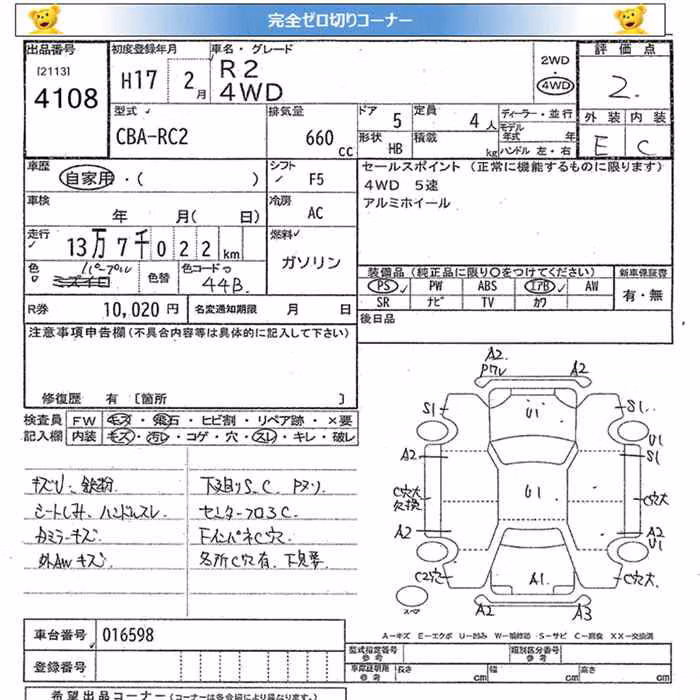 完全ゼロ切りコーナー
出品番号
[2113]
4108
初度登録年月
H17 2月
車名・グレード
R2
4WD
2WD
4WD
評価点
2.
外装 内装
E C
型式
CBA-RC2
排気量
660 cc
ドア 5
定員 4人
形状 HB
積載 kg
ディーラー・並行
モデル年式 年
ハンドル 左・右
車歴
自家用・( )
シフト
F5
車検
年 月( 日)
冷房
AC
走行
13万7千022km
燃料
ガソリン
色
パープル
ミズイロ
色替
色コードNo
44B
R券 10,020円
名変通知期限 月 日
セールスポイント (正常に機能するものに限ります)
4WD 5速
アルミホイール
装備品 (純正品に限り○をつけてください)
PS PW ABS エアB AW
SR ナビ TV カワ
新車保証書
有・無
後日品
注意事項申告欄(不具合内容等は具体的に記入して下さい)
修復歴 有 [箇所 ]
検査員記入欄
FW キズ・飛石・ヒビ割・リペア跡・×要
内装 キズ・汚レ・コゲ・穴・スレ・キレ・破レ
キズU、鉄粉
シートしみ、ハンドルスレ
カミラーキズ
外AWキズ
下廻りS.C Pヌリ
センターフロ3C
FインパネC穴
各所C穴有、下見要
A2
Pワレ
A2
S1
U1
S1
U1
A2
S1
C穴大
欠損
U1
C穴大
A2
A2
U1
C2穴
A1
C穴大
スペア
A2
A3
A－キズ E－エクボ U－凹み W－補修跡 S－サビ C－腐食 XX－交換済
車台番号 016598
登録番号
型式指定番号
参考
類別区分番号
参考
車庫証明用
参考
長さ cm
幅 cm
高さ cm
希望出品コーナー (コーナーは各会場により異なります。)